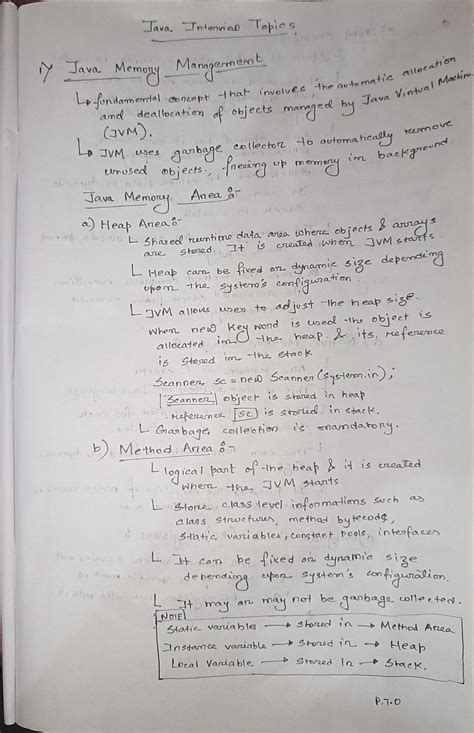 Java Interview Topics
1) Java Memory Management
↳ fundamental concept that involves the automatic allocation
and deallocation of objects managed by Java Virtual Machine
(JVM).
↳ JVM uses garbage collector to automatically remove
unused objects, freeing up memory in background.
Java Memory Area :-
a) Heap Area :-
L Shared runtime data area where objects & arrays
are stored. It is created when JVM starts.
L Heap can be fixed or dynamic size depending
upon the system's configuration.
L JVM allows user to adjust the heap size.
When new keyword is used the object is
allocated in the heap & its reference
is stored in the stack
Scanner sc = new Scanner(System.in);
Scanner object is stored in heap
reference sc is stored in stack.
L Garbage collection is mandatory.
b) Method Area :-
L logical part of the heap & it is created
when the JVM starts.
L Store class level informations such as
class structures, method bytecode,
Static variables, constant pools, interfaces
L It can be fixed or dynamic size
depending upon system's configuration.
L It may or may not be garbage collected.
NOTE
Static variables → stored in → Method Area
Instance variable → Stored in → Heap
Local Variable → Stored In → Stack.
P.T.O